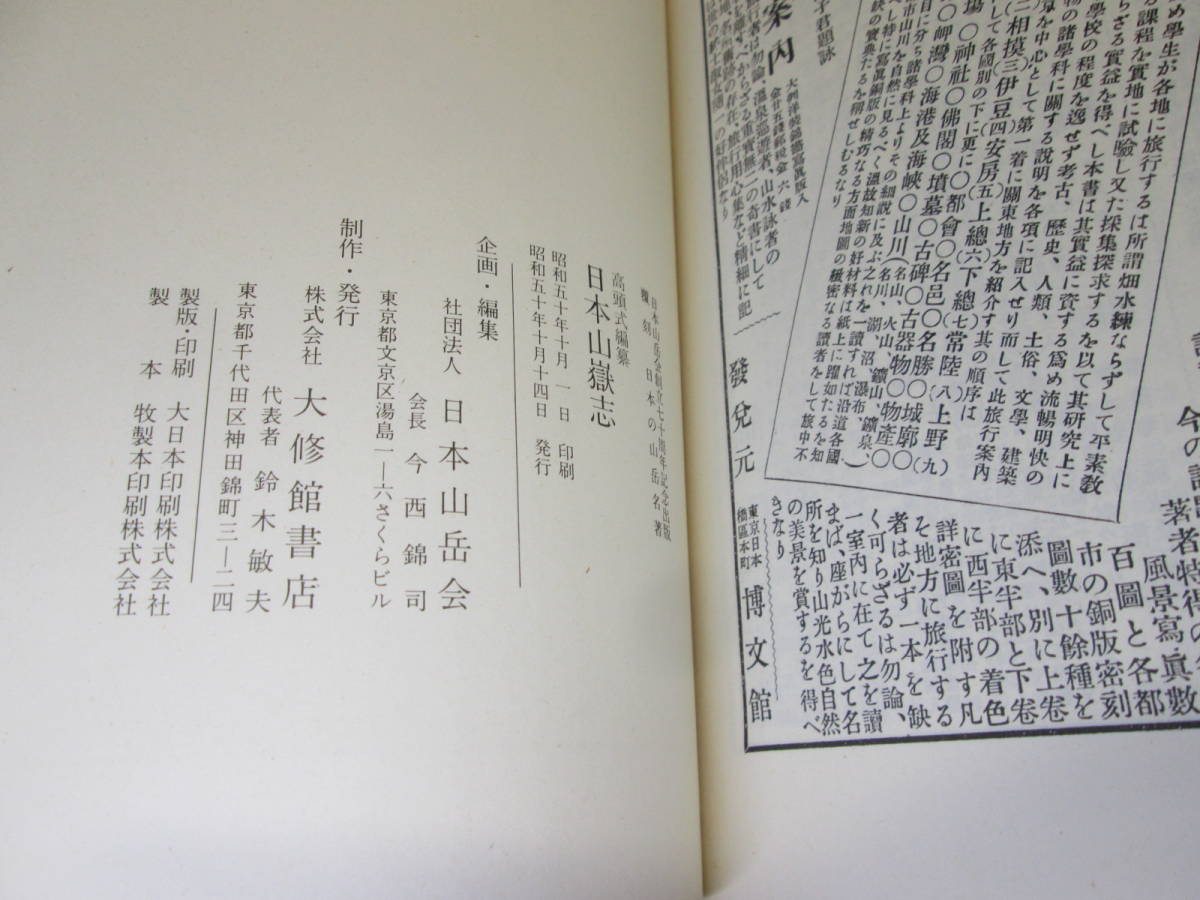 め學生が各地に旅行するは所謂畑水練ならずして平素敎
課程を實地に試驗し又た採集探求するを以て其研究上に
らざる實益を得べし本書は其實益に資する爲め流暢明快の
學校の程度を逸せず考古、歷史、人類、土俗、文學、建築
物の諸學科に關する說明を各項に記入せり而して此旅行案內
京を中心として第一着に關東地方を紹介す其の順序は
三相摸三伊豆四安房五上總六下總七常陸八上野九
して各國別の下に更に〇都會〇名邑〇名勝〇城廓〇
場〇神社〇佛閣〇墳墓〇古碑〇古器物〇物產〇
〇岬灣〇海港及海峽〇山川(名山、火山、鑛山、
名川、湖、沼、瀑布、鑛泉、)
目に分ち諸學科上よりその細說に及ぶ之れを一讀すれば沿道各國
市山川を自然に見るべく溫故知新の好材料は紙上に躍如たるを知
べし特に寫眞銅版の精巧なる方面地圖の緻密なる讀者をして旅中不
缺の寶典たるを稱せしむるなり
子君題詠
案內
大判洋裝錦繪寫眞版入
金廿五錢郵稅金六錢
旅行者は勿論、溫泉巡遊者、山水詠者の
る可からざる重寳無二の奇書にして
境、名所舊跡の存在、旅行用心集など精細に記
一の好伴侶なり
發兌元
東京日本
橋區本町
博文館
著者特得の
風景寫眞數
百圖と各都
市の銅版密刻
圖數十餘種を
添へ、別に上卷
に東半部と下卷
に西半部の着色
詳密圖を附す凡
そ地方に旅行する
者は必ず一本を缺
く可らざるは勿論、
一室內に在て之を讀
まば、座がらにして名
所を知り山光水色自然
の美景を賞するを得べ
きなり
日本山岳会創立七十周年記念出版
覆刻 日本の山岳名著
高頭式編纂
日本山嶽志
昭和五十年十月 一 日 印刷
昭和五十年十月十四日 発行
企画・編集
社団法人 日本山岳会
会長 今西錦司
東京都文京区湯島一—六さくらビル
制作・発行
株式会社 大修館書店
代表者 鈴木敏夫
東京都千代田区神田錦町三—二四
製版・印刷 大日本印刷株式会社
製 本 牧製本印刷株式会社